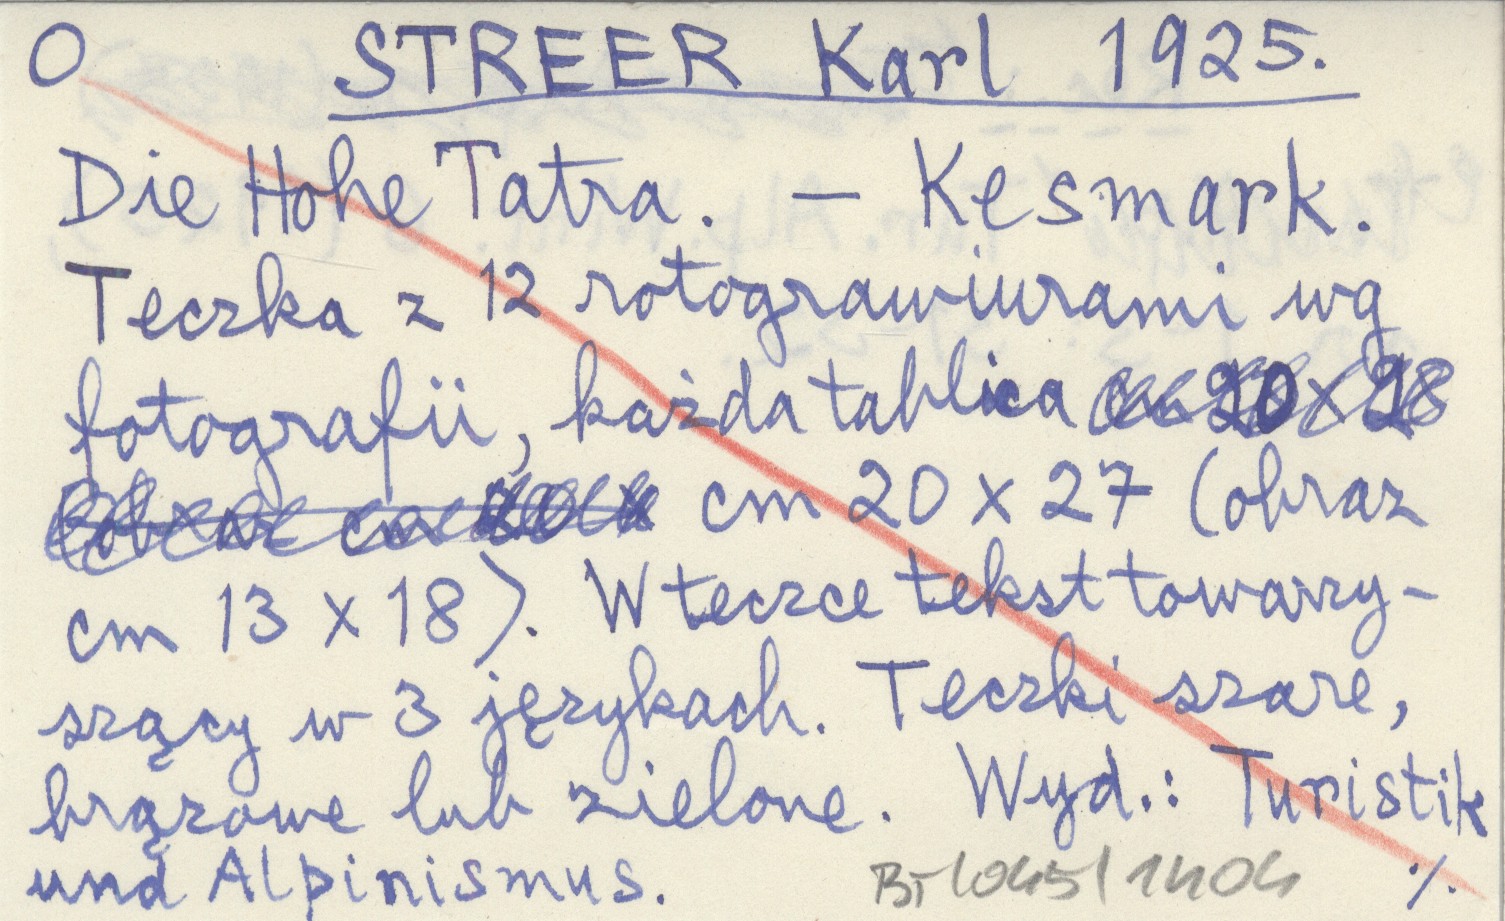 O STREER Karl 1925.
Die Hohe Tatra. — Kesmark.
Teczka z 12 rotograwiurami wg
fotografii, każda tablica
cm 20 x 27 (obraz
cm 13 x 18). W teczce tekst towarzy-
szący w 3 językach. Teczki szare,
brązowe lub zielone. Wyd.: Turistik
und Alpinismus. BT/045/1404 ·/.